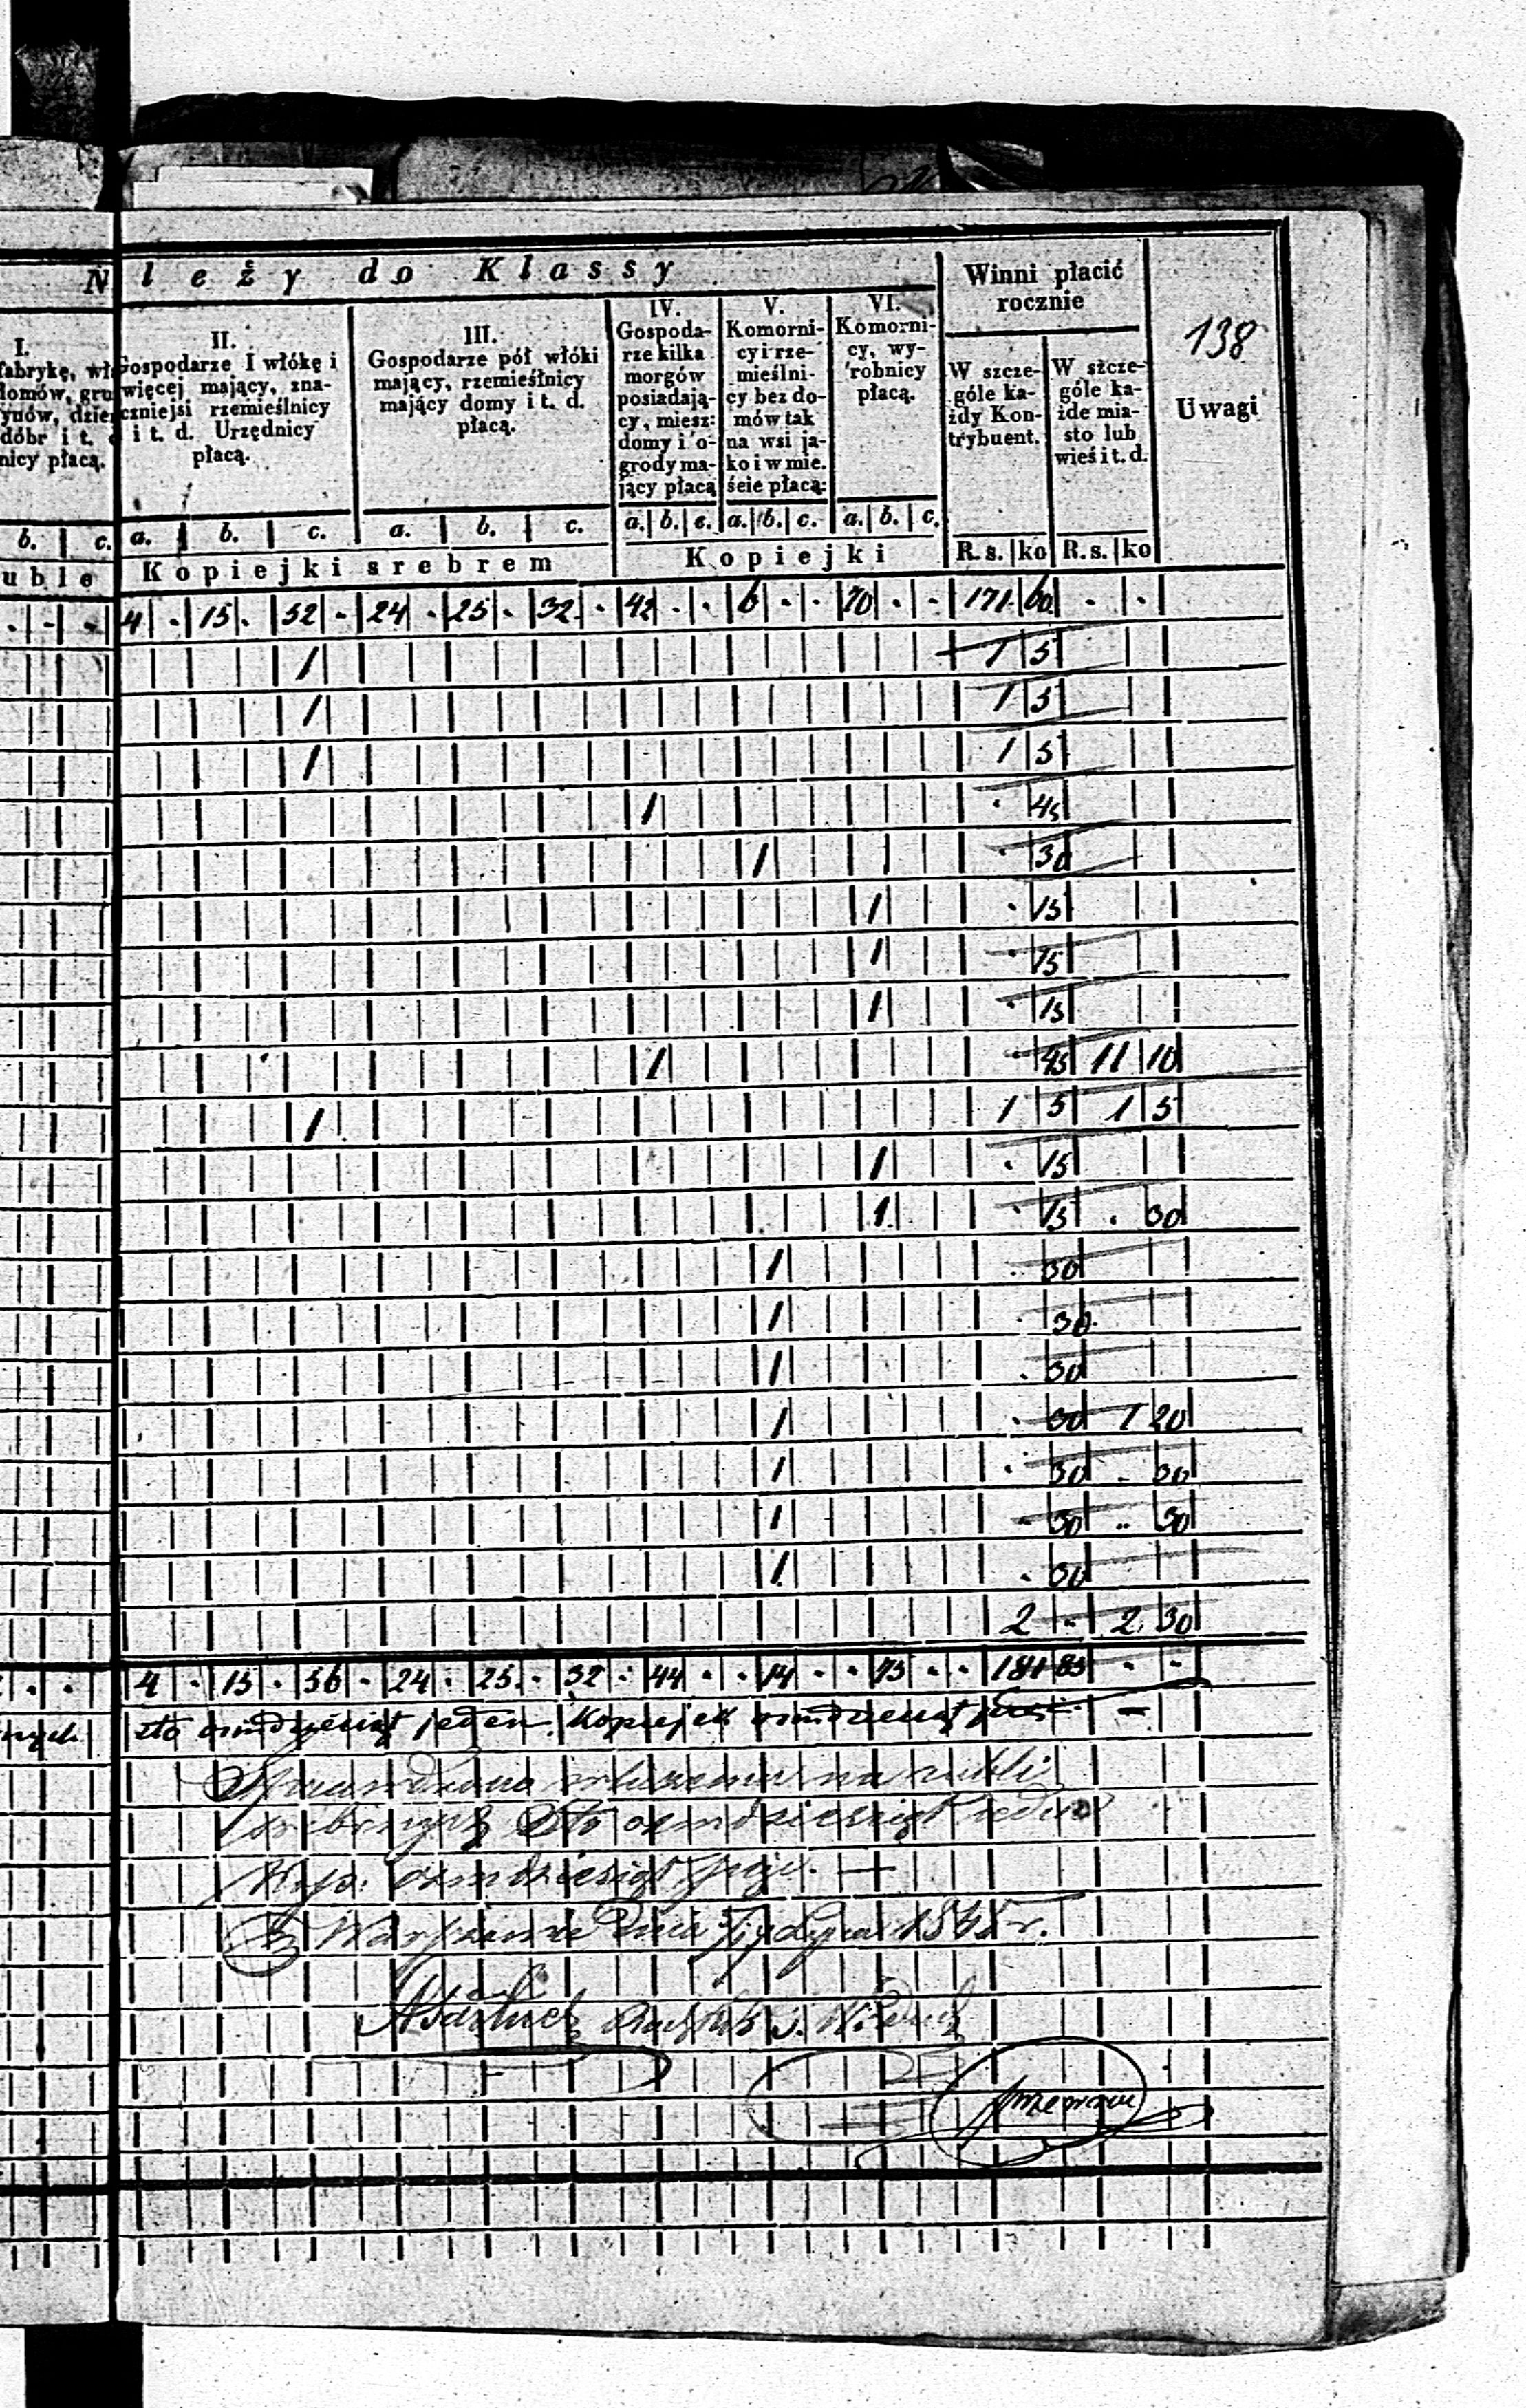 N leży do Klassy
Winni płacić
rocznie
138
Uwagi
I.
fabrykę, wł
domów, gru
ynów, dzier
dóbr i t. d
nicy płacą.
II.
Gospodarze I włókę i
więcej mający, zna-
czniejsi rzemieślnicy
i t. d. Urzędnicy
płacą.
III.
Gospodarze pół włóki
mający, rzemieślnicy
mający domy i t. d.
płacą.
IV.
Gospoda-
rze kilka
morgów
posiadają-
cy, miesz:
domy i o-
grody ma-
jący płacą
V.
Komorni-
cy i rze-
mieślni-
cy bez do-
mów tak
na wsi ja-
ko i w mie.
ście płacą:
VI.
Komorni-
cy, wy-
robnicy
płacą.
W szcze-
góle ka-
żdy Kon-
trybuent.
W szcze-
góle ka-
żde mia-
sto lub
wieś i t. d.
b. c. a. b. c. a. b. c. a. b. c. a. b. c. a. b. c.
uble Kopiejki srebrem Kopiejki R.s. ko R.s. ko
4 . 15 . 52 . 24 . 25 . 32 . 42 . . 6 . . 70 . . 171 60 . .
1 1 5
1 1 5
1 1 5
1 . 45
1 . 30
1 . 15
1 . 15
1 . 15
1 . 45 11 10
1 1 5 1 5
1 . 15
1 . 15 . 30
1 . 30
1 . 30
1 . 30
1 . 30 1 20
1 . 30 . 30
1 . 30 .. 30
1 . 30
2 .. 2 30
4 . 15 . 56 . 24 . 25 . 32 . 44 . . 14 . . 75 . . 181 85 . .
sto osmdziesiąt jeden. Kopiejek osmdziesiąt pięć. —
na rubli
srebrnych Sto osmdziesiąt jeden
Kop. osmdziesiąt pięć. —
Warszawie Dnia